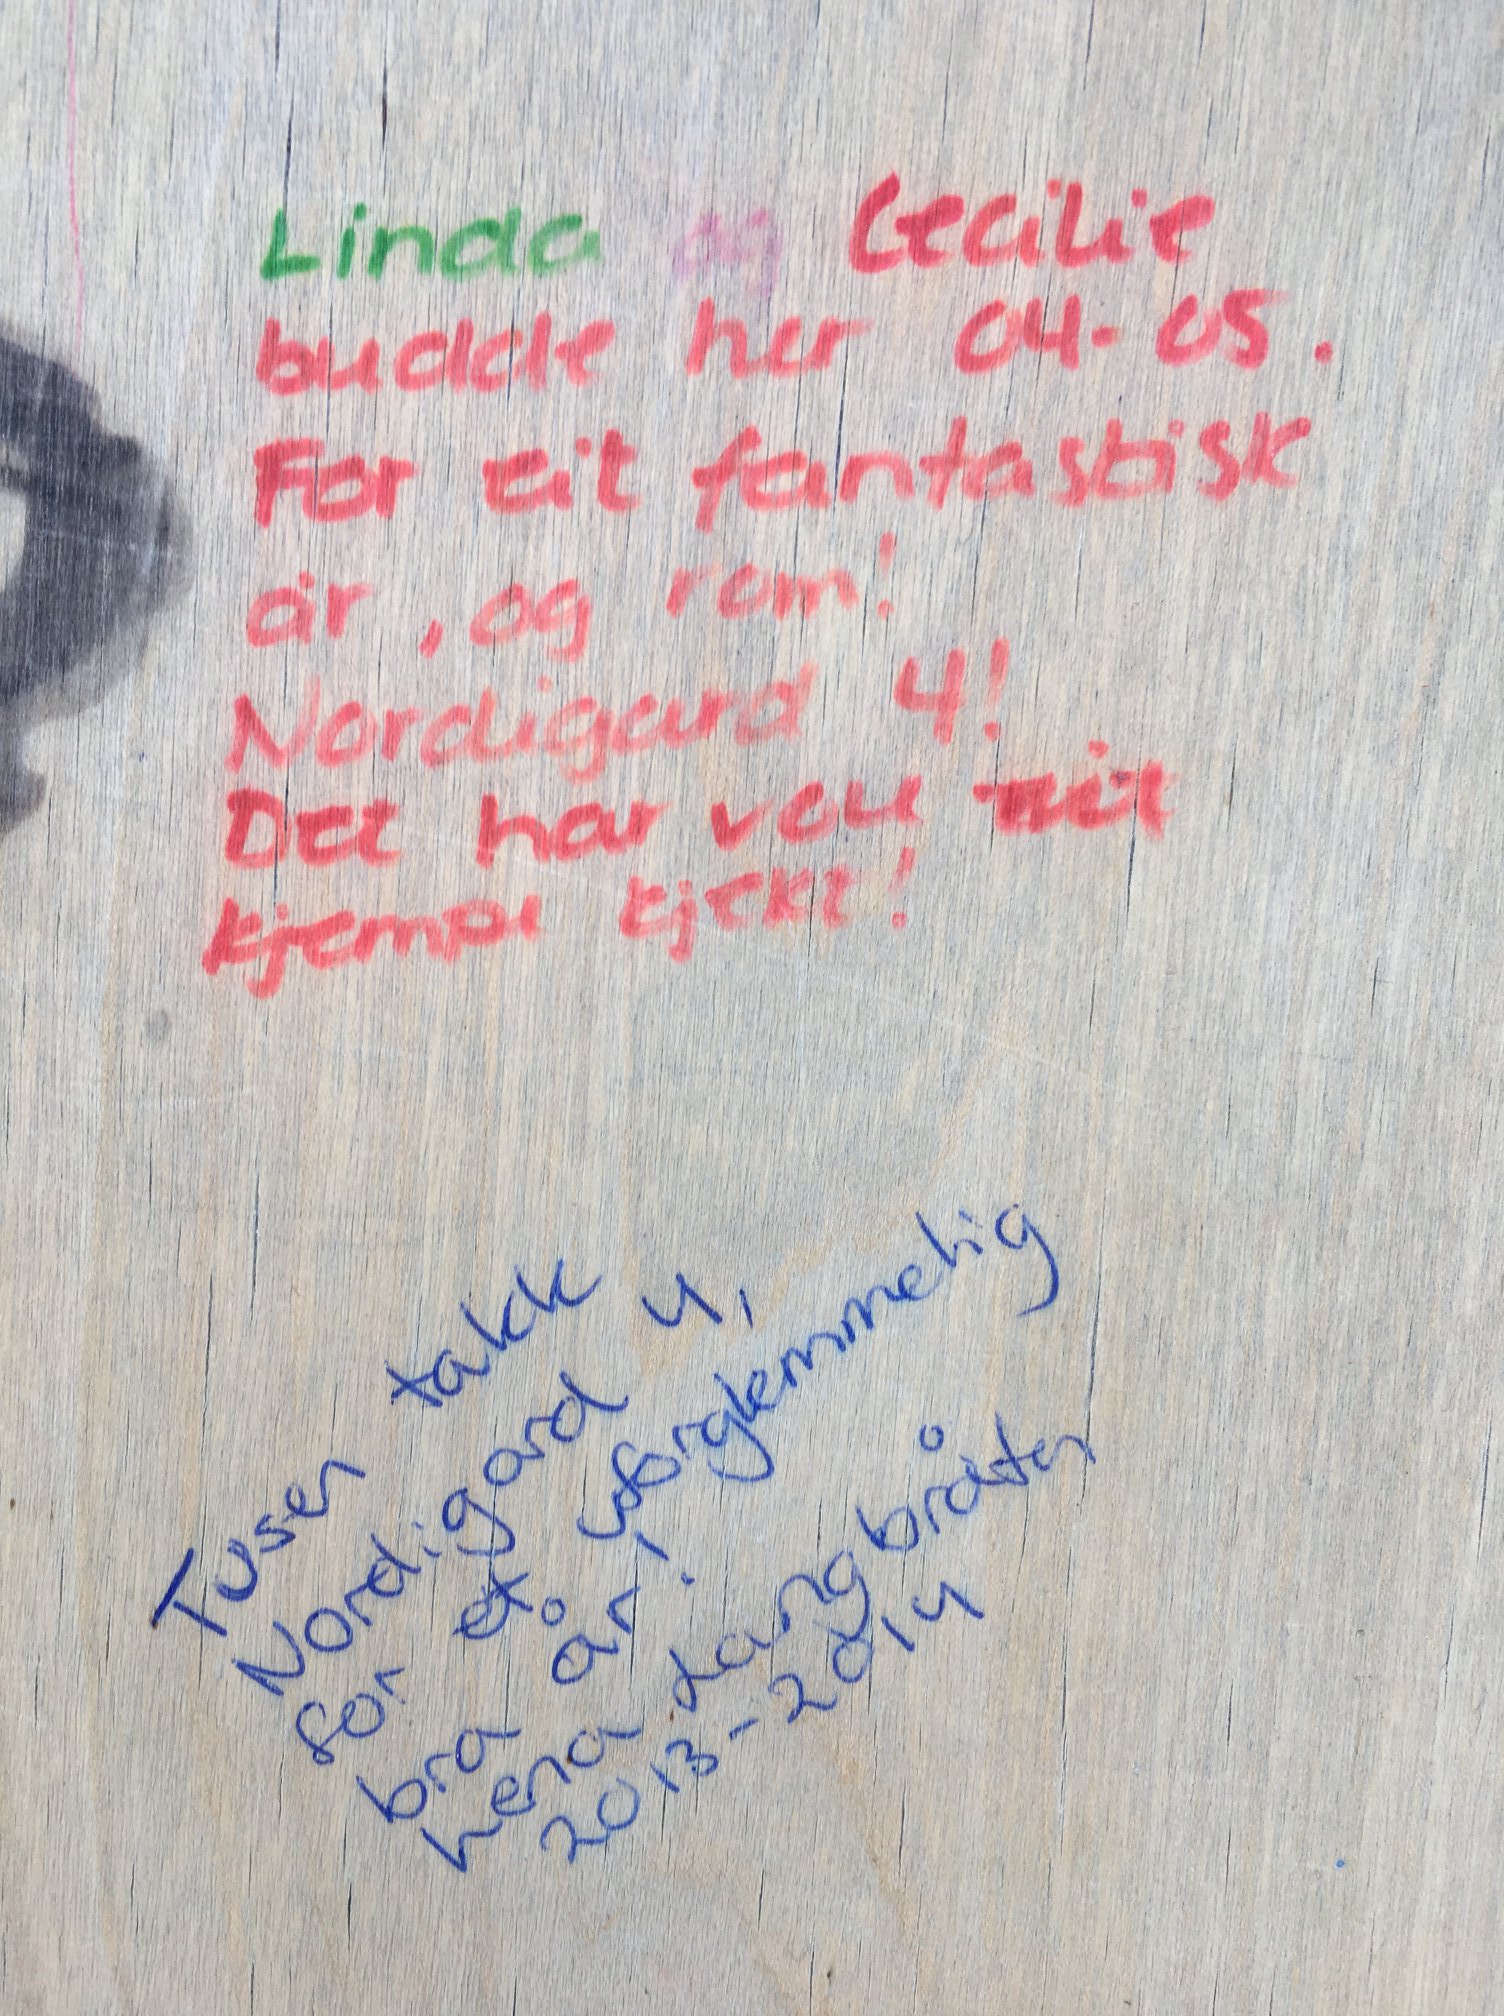 Linda og Cecilie
budde her 04-05.
For eit fantastisk
år, og rom!
Nordigard 4!
Det har vou eit
kjempe kjekt!
Tusen takk
Nordigard 4,
for et uforglemmelig
bra år!
hena Langbråten
2013-2014